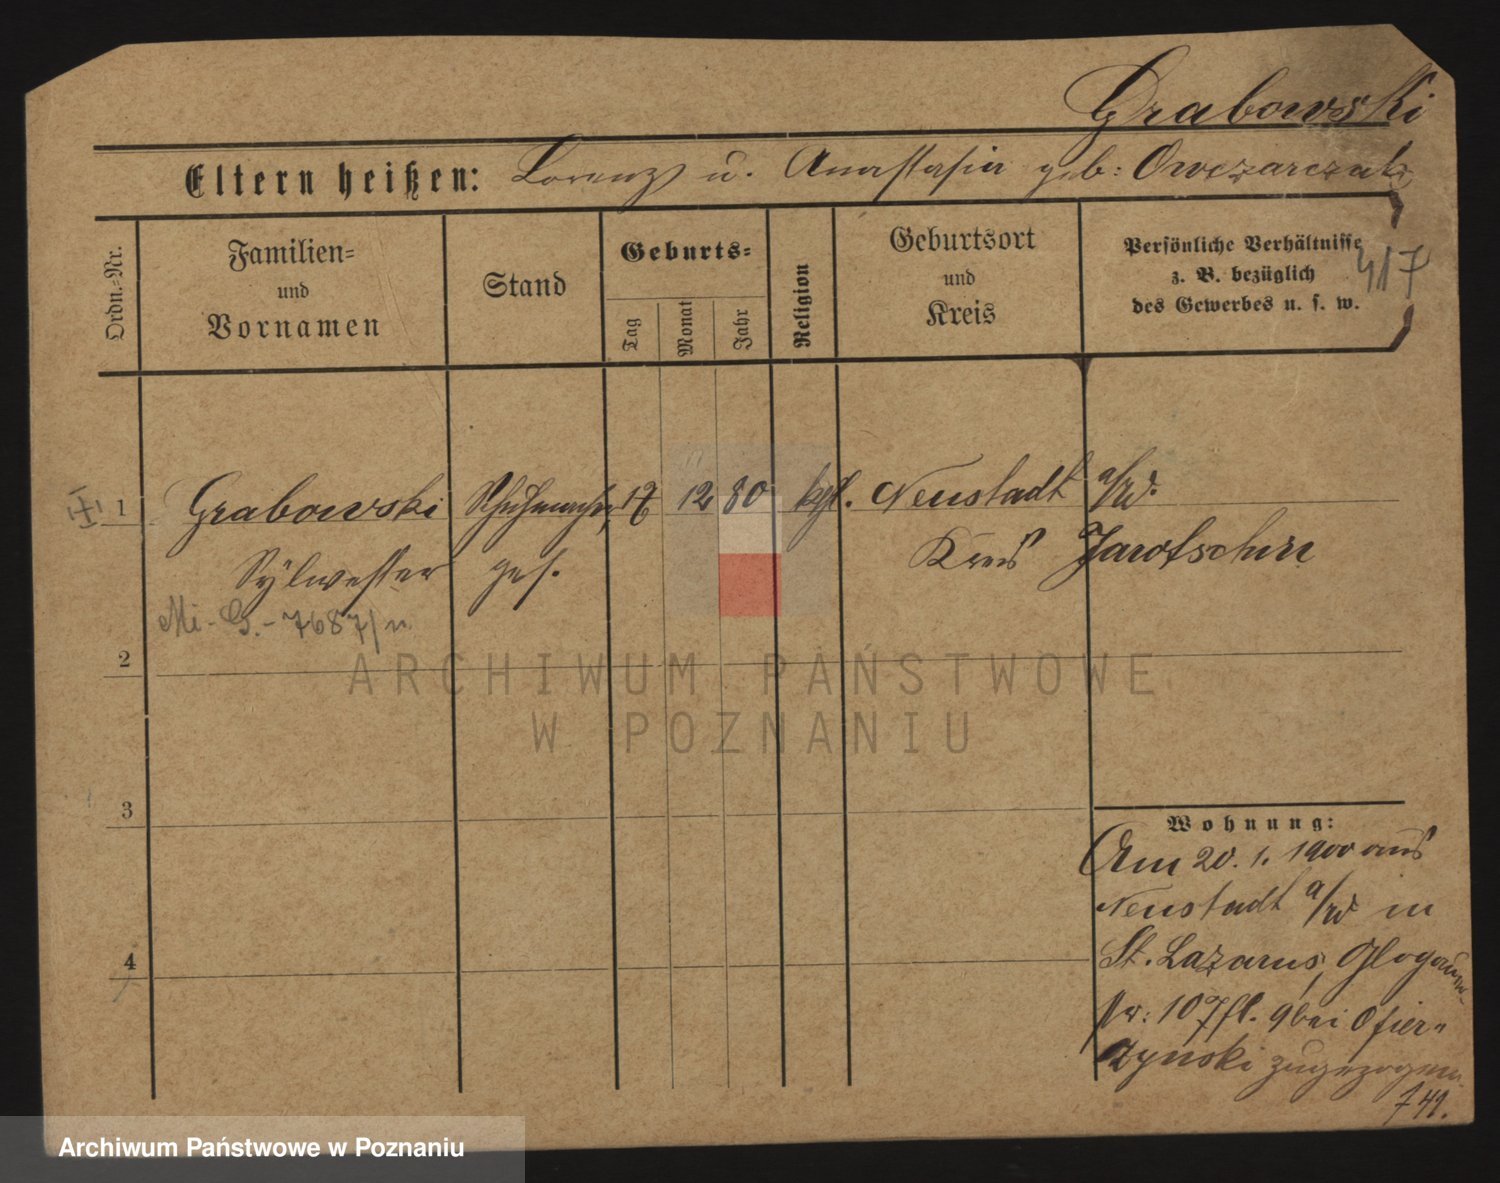 Grabowski
Eltern heißen: Lorenz u. Anastasia geb: Owczarczak
Ordn.-Nr.
Familien-
und
Vornamen
Stand
Geburts-
Tag
Monat
Jahr
Religion
Geburtsort
und
Kreis
Persönliche Verhältnisse
z. B. bezüglich
des Gewerbes u. s. w.
417
1 Grabowski Schuhmacher 12 80 kath. Neustadt a/W.
Sylwester ges. Kreis Jarotschin
Mi-G.-7687/
2
ARCHIWUM PAŃSTWOWE
W POZNANIU
3
4
Wohnung:
Am 20. 1. 1900 aus
Neustadt a/W in
St. Lazarus, Glogauer-
str: 107 bei Ofier-
zynski zugezogen
741.
Archiwum Państwowe w Poznaniu